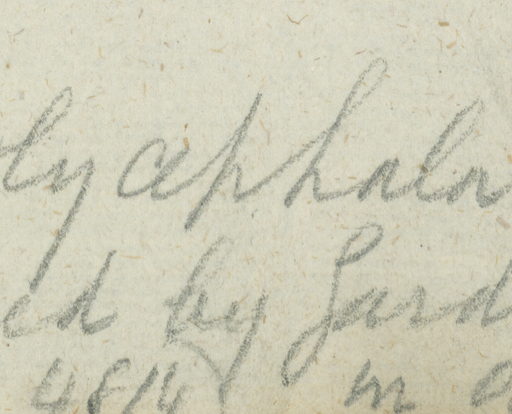 lycephala
ed by Gard
4814 m